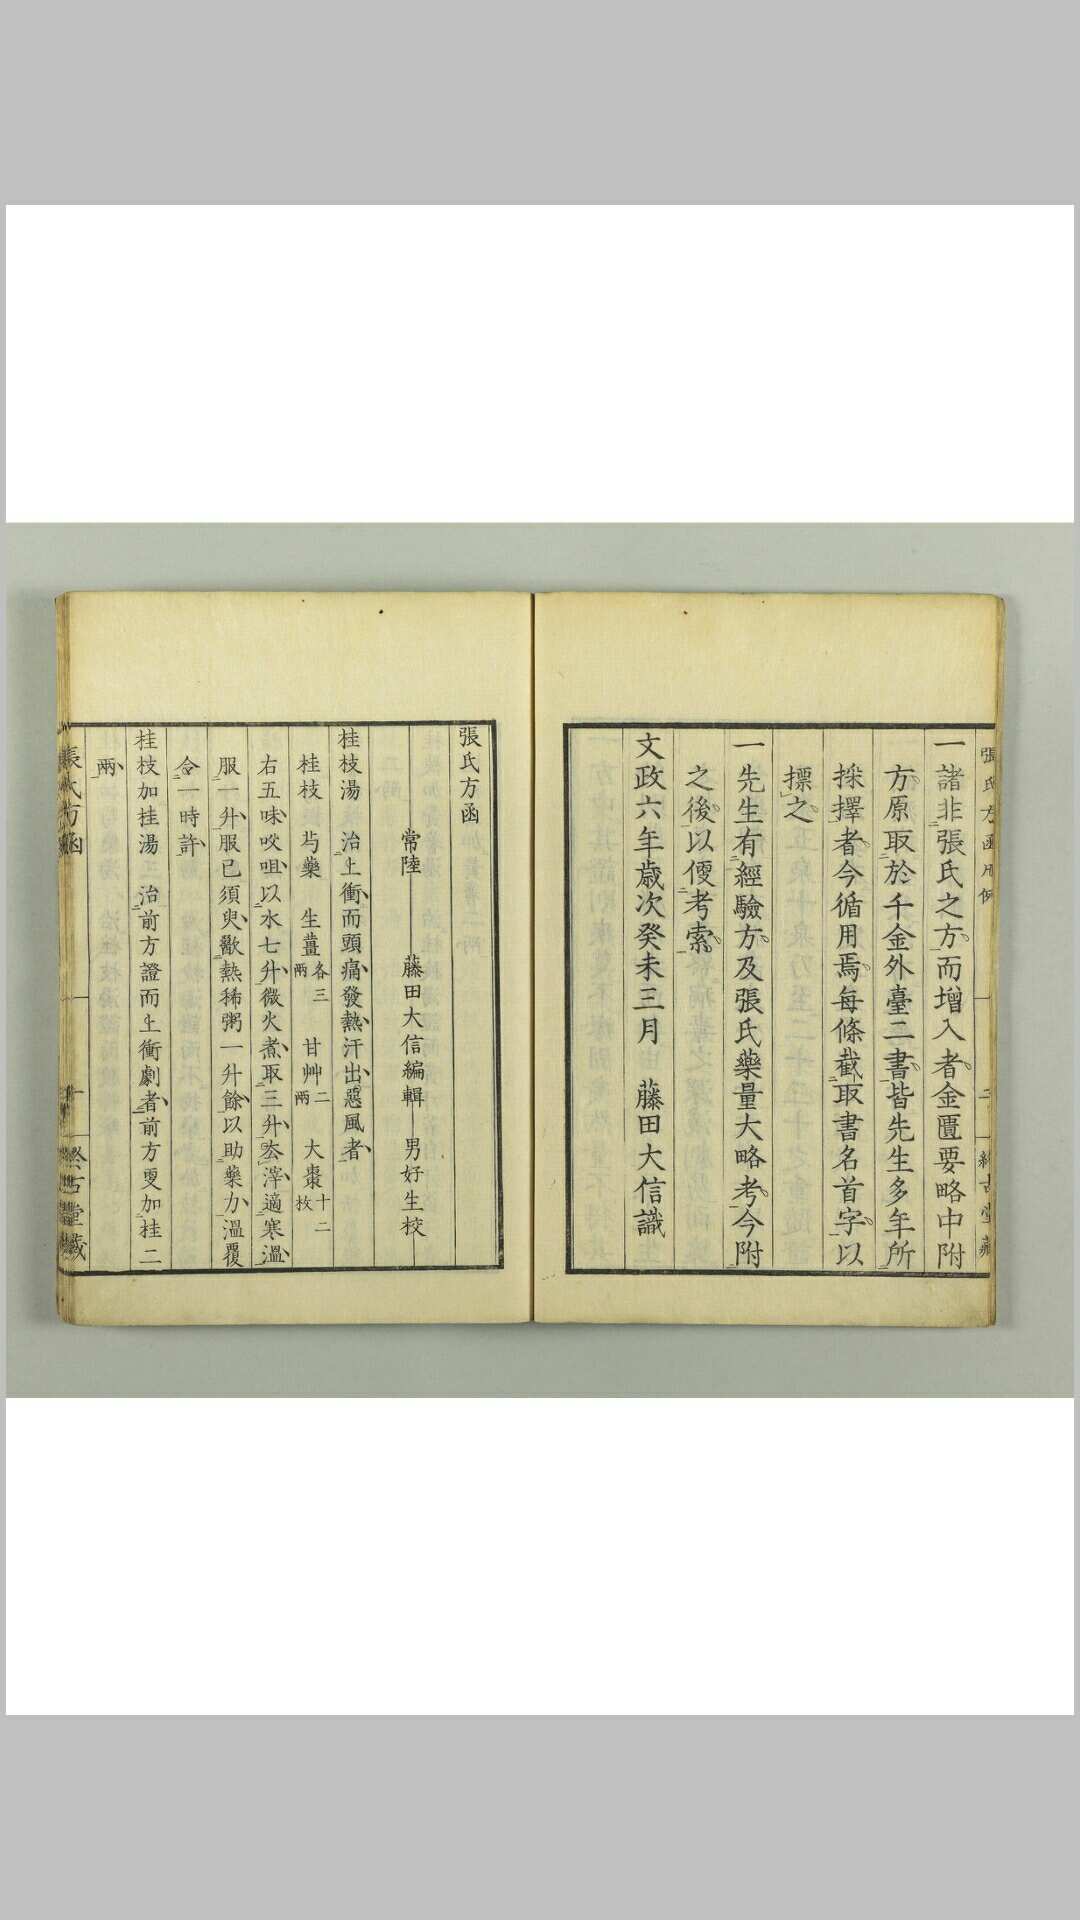 張氏方函凡例
二
一諸非張氏之方而增入者金匱要略中附
方原取於千金外臺二書皆先生多年所
採擇者今循用焉每條截取書名首字以
標之
一先生有經驗方及張氏藥量大略考今附
之後以便考索
文政六年歲次癸未三月　藤田大信識
張氏方函
常陸　藤田大信編輯　男好生校
桂枝湯　治上衝而頭痛發熱汗出惡風者
桂枝　芍藥　生薑各三兩　甘艸二兩　大棗十二枚
右五味㕮咀以水七升微火煮取三升去滓適寒溫
服一升服已須臾歠熱稀粥一升餘以助藥力溫覆
令一時許
桂枝加桂湯　治前方證而上衝劇者前方更加桂二
兩
張氏方函
一